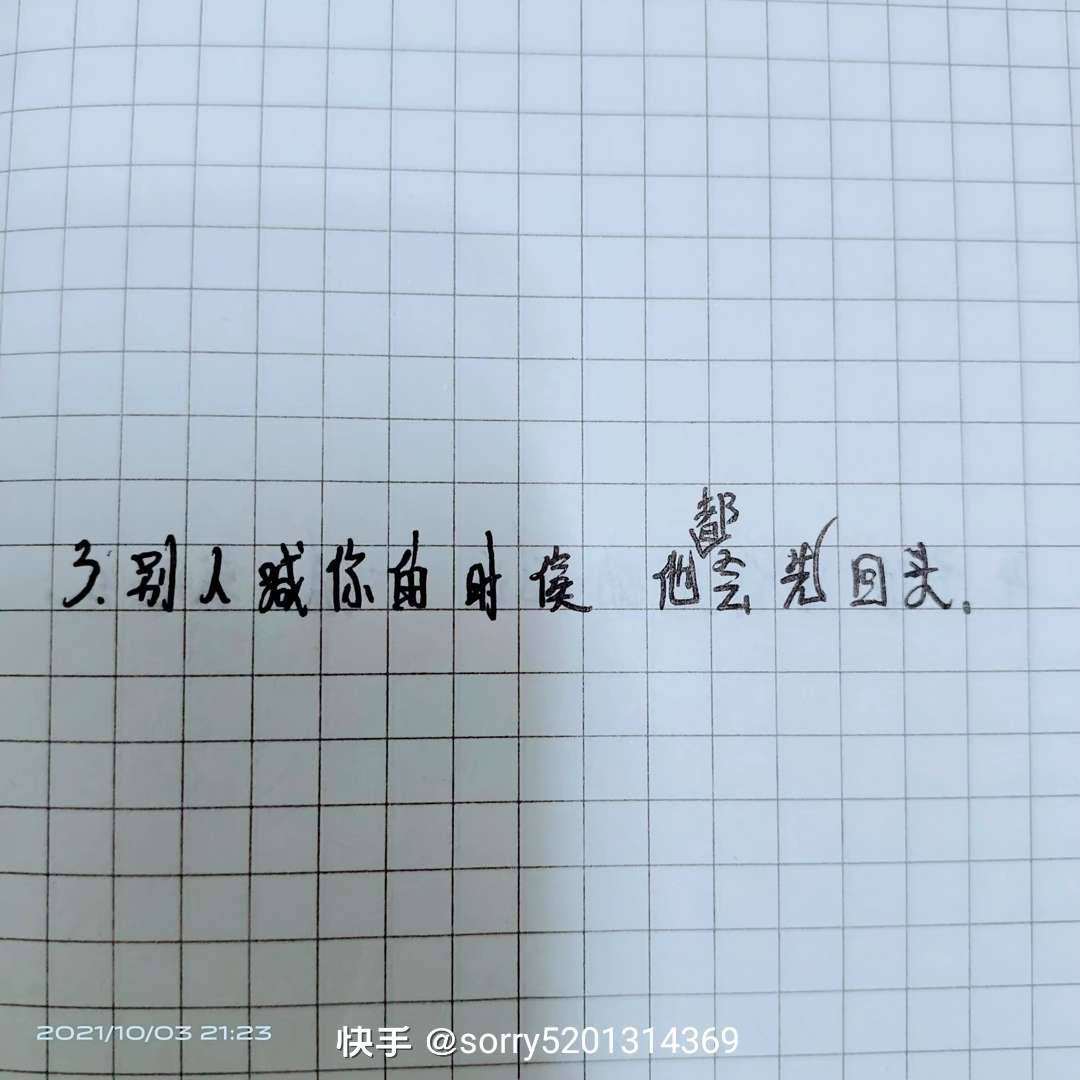 3.别人喊你的时候 他都会先回头.
2021/10/03 21:23
快手 @sorry5201314369